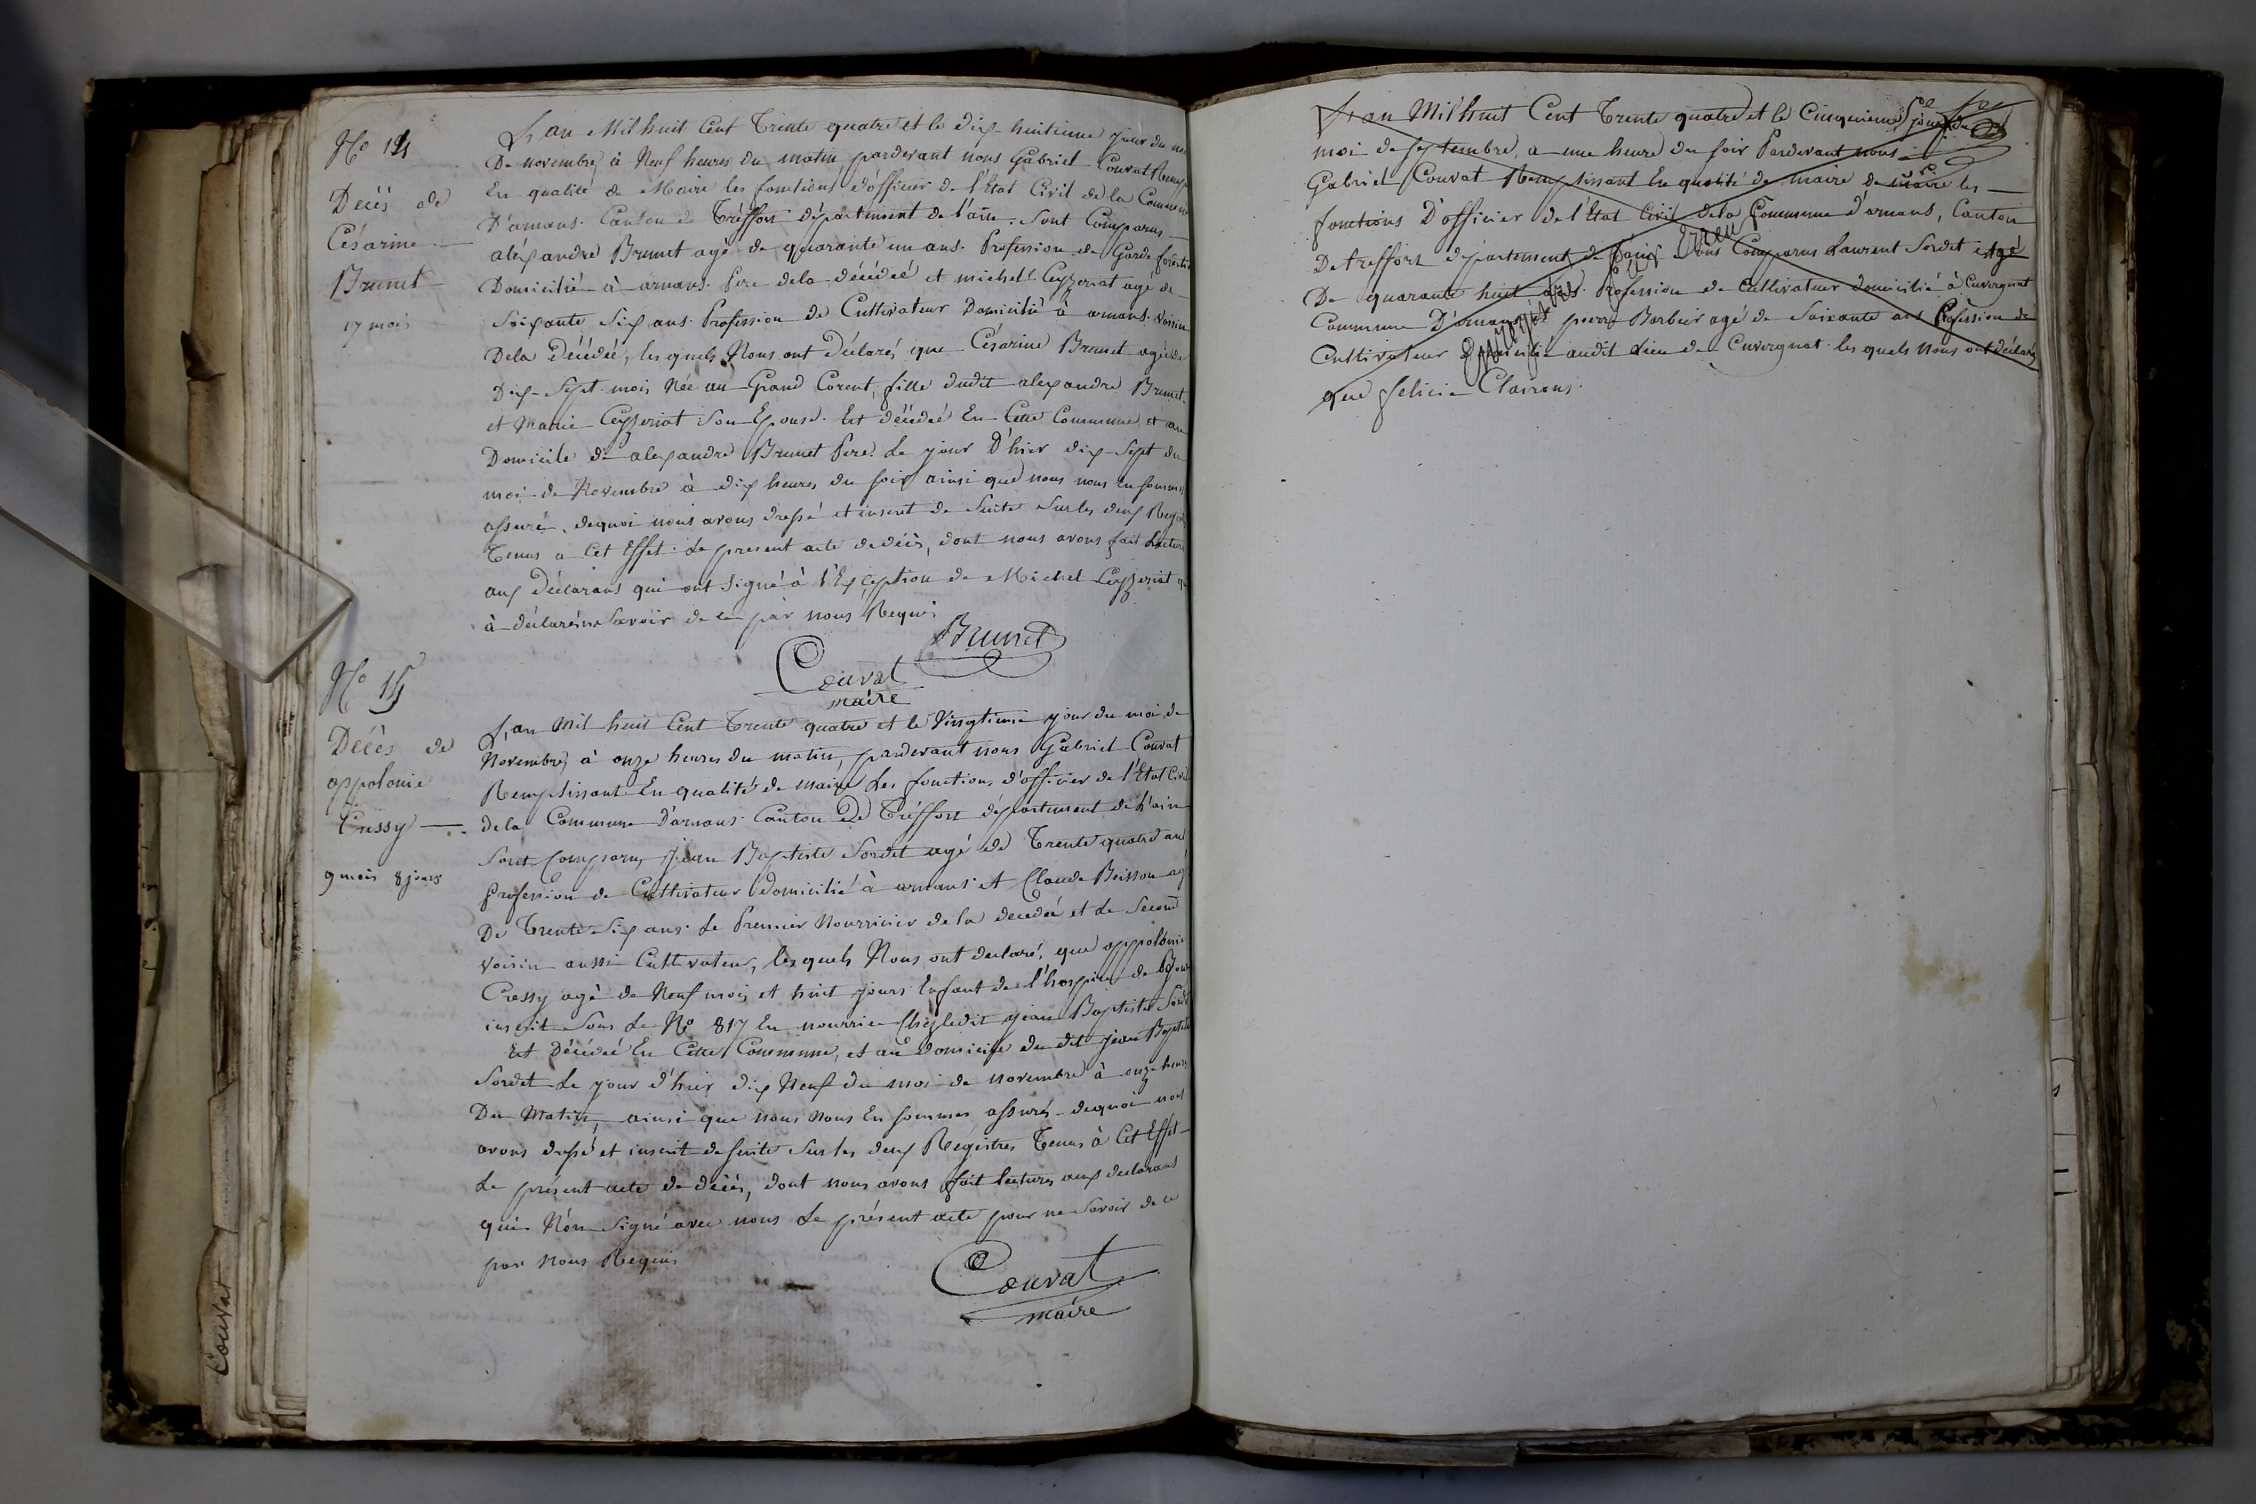 No 14
Décès de
Césarine
Brunet
17 mois
L'an Mil huit Cent Trente quatre et le dix huitieme jour du moi
De novembre à Neuf heures du matin pardevant nous Gabriel Couvat
En qualité de Maire les fonctions d'officier de l'Etat Civil de la Commune
D'arnans. Canton de Tréffort département de l'ain. Sont Comparus
aléxandre Brunet agé de quarante un ans. Profession de Garde forêtie
Domicilié à arnans. Pere dela décédeé et michel Ceyzeriat agé de
Soixante Six ans. Profession de Cultivateur Domicilié à arnans. Voisin
Dela Décédeé, les quels Nous ont déclarés que Césarine Brunet agée de
Dix-Sept mois Née au Grand Corent, fille dudit alexandre Brunet
et Marie Ceyzeriat Son Epouse. Est décédeé En Cette Commune, et au
Domicile de alexandre Brunet Pere. Le jour D'hier dix-Sept du
moi de Novembre à dix heures du soir ainsi que nous nous en sommes
assuré, dequoi nous avons dressé et inscrit de Suite Sur les deux Regis
Tenus a Cet Effet. Le present acte dedécès, dont nous avons fait Lecture
aux Déclarans qui ont Signé à l'Exception de Michel Ceyzeriat qui
à déclaré ne Savoir de ce par nous Requis
Brunet
Couvat
maire
No 15
Décès de
appolonie
Cressy
9 mois 8 jours
L'an Mil huit Cent Trente quatre et le Vingtieme jour du moi de
Novembre, à onze heures du matin, pardevant nous Gabriel Couvat
Remplissant En qualité de maire Les fonctions d'officier de l'Etat Civil
dela Commune D'arnans. Canton De Tréffort département de L'ain
Sont Comparus Jean Baptiste Sordet agé de Trente quatre ans
Profession de Cultivateur Domicilié à arnans. et Claude Beisson agé
De Trente Six ans. Le Premier Nourricier de la decedeé et Le Second
Voisin aussi Cultivateur, les quels Nous ont declaré, que appolonie
Cressy agé de Neuf mois et huit jours Enfant de l'hospice de Bour
inscrit Sous Le No 817 En nourrice Chez ledit jean Baptiste Sordet
Est Décédeé En Cette Commune, et au Domicile du dit jean Baptiste
Sordet Le jour d'hier dix Neuf du moi de novembre à onze heures
Du Matin, ainsi que nous Nous En sommes assuré, dequoi nous
avons dressé et inscrit desuite Sur les deux Régistres Tenus à Cet Effet
Le présent acte de décès, dont nous avons fait lectures aux declarans
qui N'on Signé avec nous Le présent acte pour ne Savoir de ce
par Nous Requis
Couvat
maire
Couvat
L'an Mil huit Cent Trente quatre et le Cinquieme jour du
moi de Septembre, a une heure du soir Pardevant nous
Gabriel Couvat Remplissant En qualité de maire de maire les
fonctions D'officier de l'Etat Civil dela Commune d'arnans, Canton
De treffort département de l'ain Sous Comparus Laurent Sordet agé
De quarante huit ans. Profession de Cultivateur domicilié à Cuvergnat
Commune D'arnans et pierre Barbeir agé de Soixante ans Profession de
Cultivateur Domicilié audit Lieu de Cuvergnat. les quels Nous ont déclaré
que felicie Clairons.
Erreur